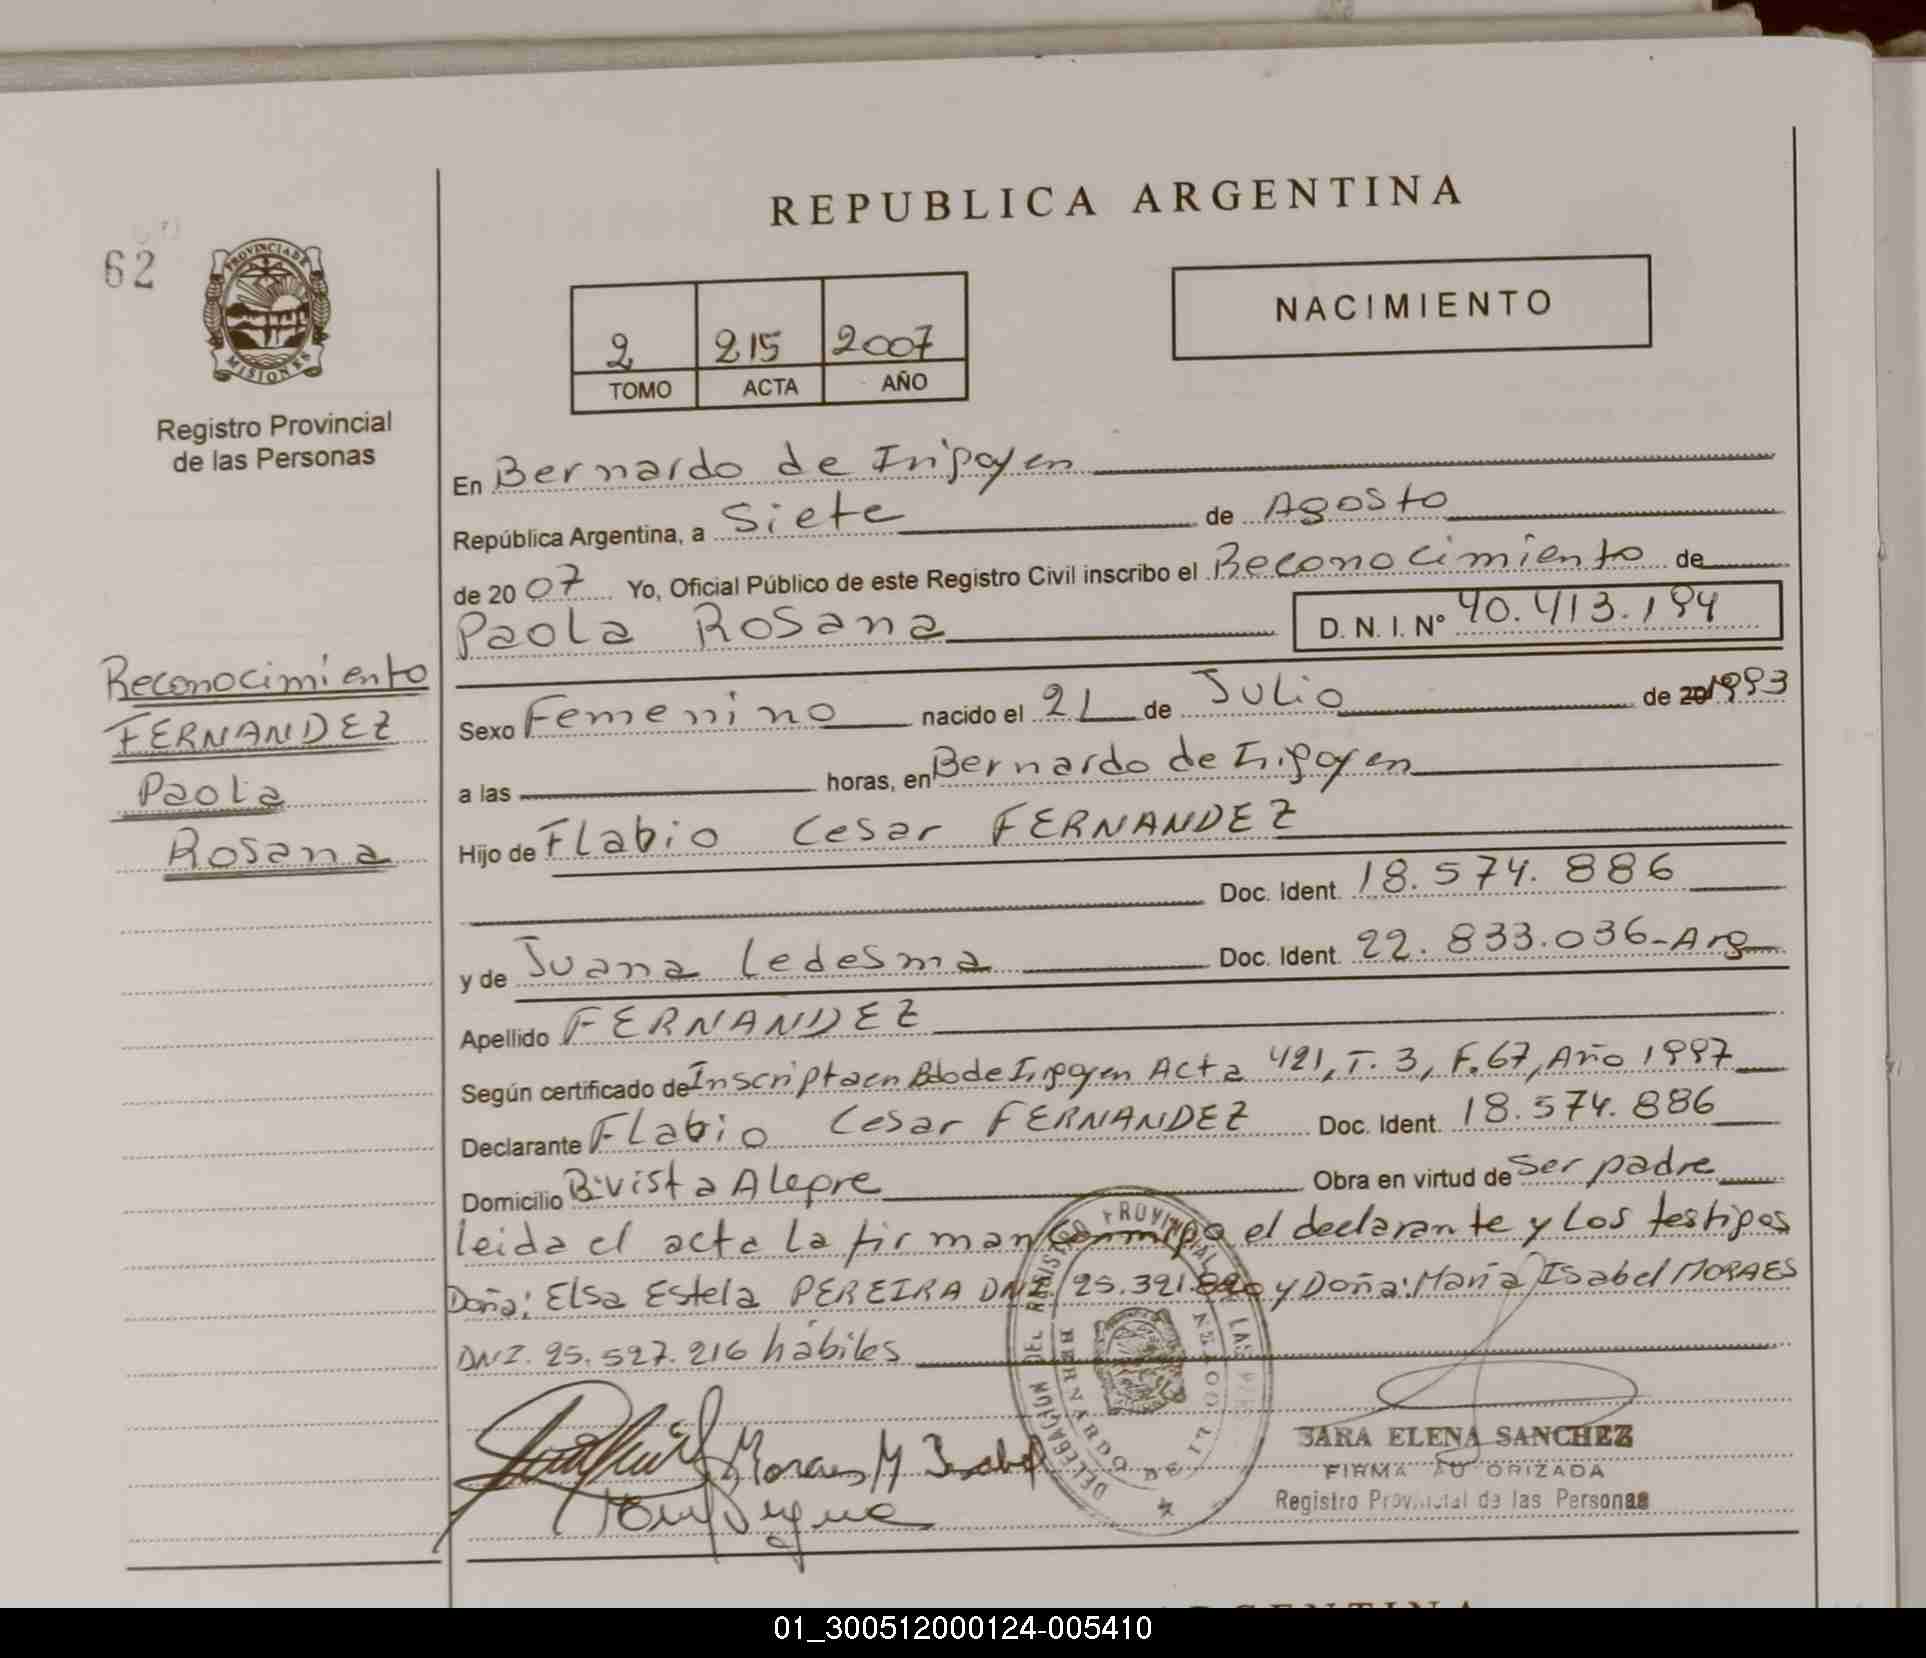 REPUBLICA ARGENTINA
62
PROVINCIA DE
MISIONES
Registro Provincial
de las Personas
NACIMIENTO
2 215 2007
TOMO ACTA AÑO
En Bernardo de Iripoyen
República Argentina, a Siete de Agosto
de 20 07 Yo, Oficial Público de este Registro Civil inscribo el Reconocimiento de
Paola Rosana D. N. I. N° 40.413.194
Reconocimiento
FERNANDEZ
Paola
Rosana
Sexo Femenino nacido el 21 de Julio de 20 1993
a las horas, en Bernardo de Iripoyen
Hijo de Flabio Cesar FERNANDEZ
Doc. Ident. 18.574.886
y de Juana Ledesma Doc. Ident. 22.833.036-Arg
Apellido FERNANDEZ
Según certificado de Inscripta en Bdo de Iripoyen Acta 421, T. 3, F. 67, Año 1997
Declarante Flabio Cesar FERNANDEZ Doc. Ident. 18.574.886
Domicilio B: Vista Alepre Obra en virtud de Ser padre
leida el acta la firman conmipo el declarante y los testipos
Doña: Elsa Estela PEREIRA DNI 25.321.820 y Doña: María Isabel MORAES
DNI. 25.527.216 hábiles
Moraes M Isabel
DELEGACION DEL REGISTRO PROVINCIAL DE LAS
BERNARDO DE
SARA ELENA SANCHEZ
FIRMA AUTORIZADA
Registro Provincial de las Personas
ARGENTINA
01_300512000124-005410